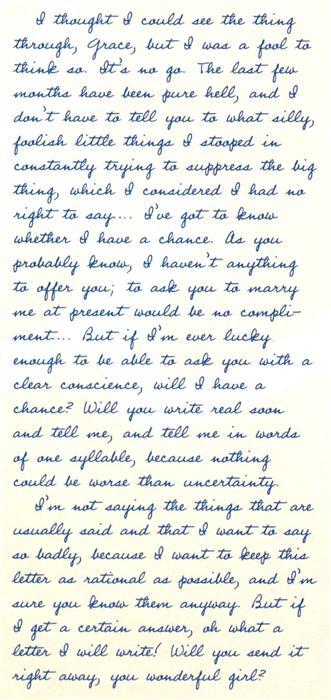 I thought I could see the thing
through, Grace, but I was a fool to
think so. It's no go. The last few
months have been pure hell, and I
don't have to tell you to what silly,
foolish little things I stooped in
constantly trying to suppress the big
thing, which I considered I had no
right to say.... I've got to know
whether I have a chance. As you
probably know, I haven't anything
to offer you; to ask you to marry
me at present would be no compli-
ment.... But if I'm ever lucky
enough to be able to ask you with a
clear conscience, will I have a
chance? Will you write real soon
and tell me, and tell me in words
of one syllable, because nothing
could be worse than uncertainty.
I'm not saying the things that are
usually said and that I want to say
so badly, because I want to keep this
letter as rational as possible, and I'm
sure you know them anyway. But if
I get a certain answer, oh what a
letter I will write! Will you send it
right away, you wonderful girl?